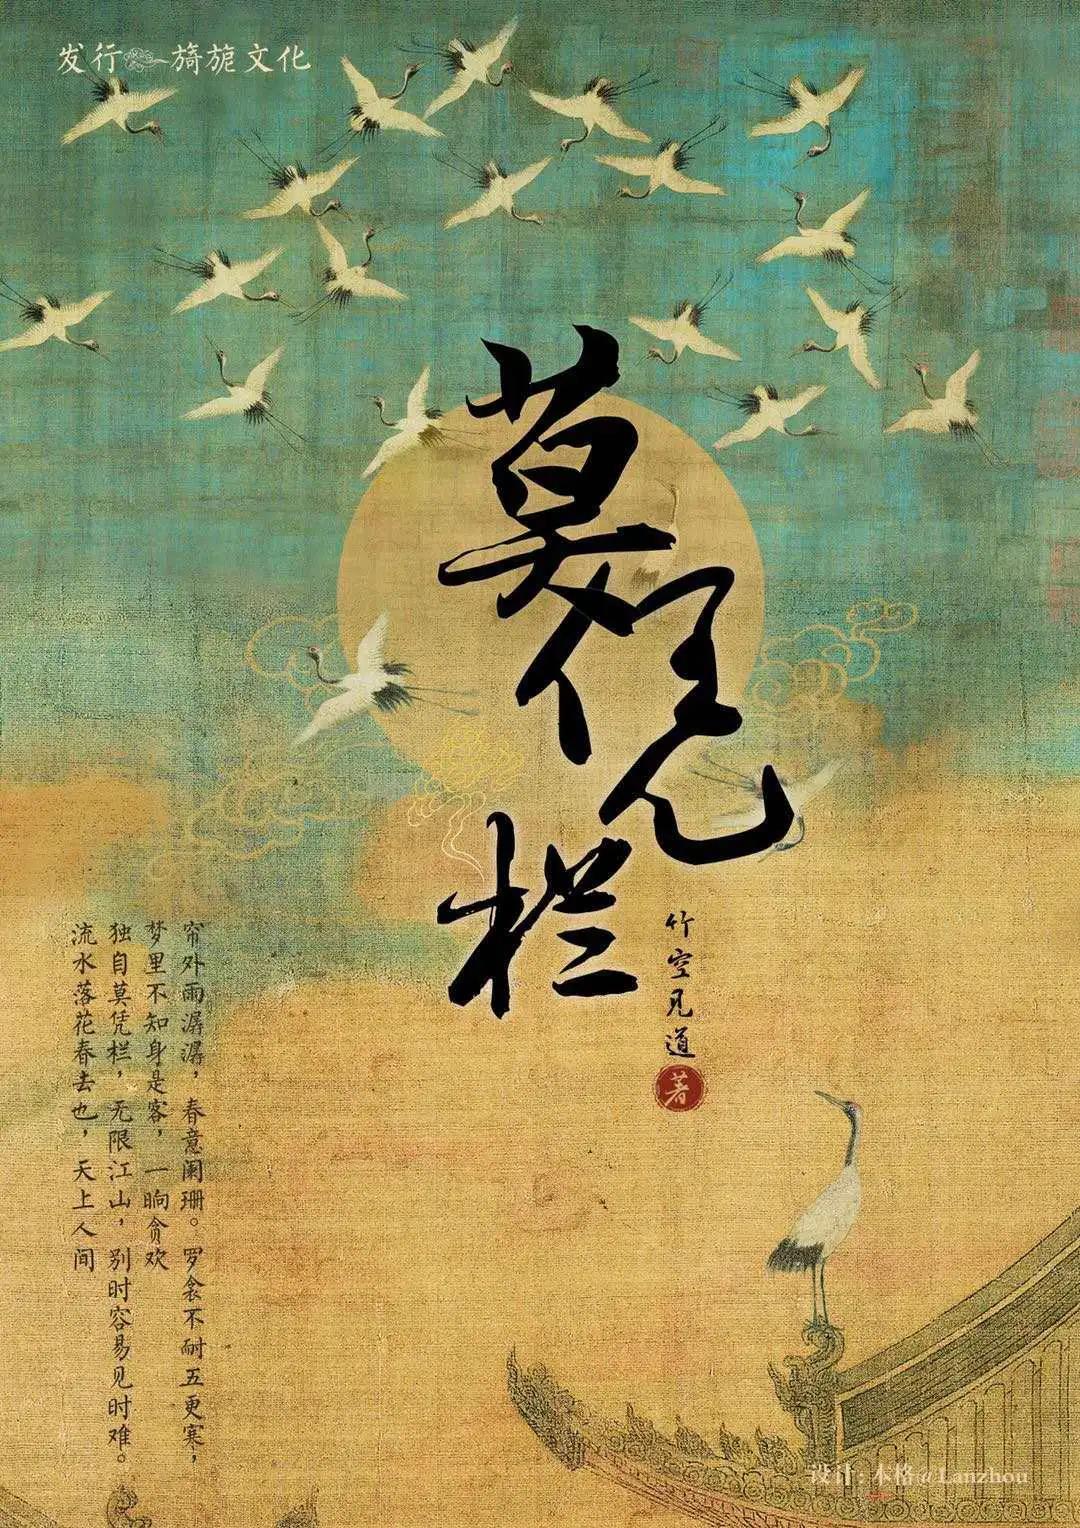 发行 旖旎文化
莫凭栏
竹空见道
著
帘外雨潺潺，春意阑珊。罗衾不耐五更寒，
梦里不知身是客，一晌贪欢
独自莫凭栏，无限江山，别时容易见时难。
流水落花春去也，天上人间
设计：本格@Lanzhou